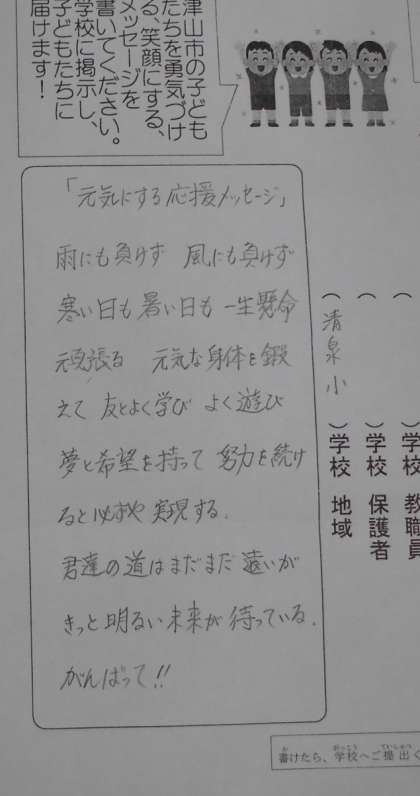 津山市の子ども
たちを勇気づけ
る、笑顔にする、
メッセージを
書いてください。
学校に掲示し、
子どもたちに
届けます!
「元気にする応援メッセージ」
雨にも負けず 風にも負けず
寒い日も暑い日も 一生懸命
頑張る 元気な身体を鍛
えて 友とよく学び よく遊び
夢と希望を持って 努力を続け
ると必ずや 実現する.
君達の道はまだまだ遠いが
きっと明るい未来が待っている.
がんばって!!
( )学校 教職員
( )学校 保護者
(清泉小)学校 地域
書けたら、学校へご提出く